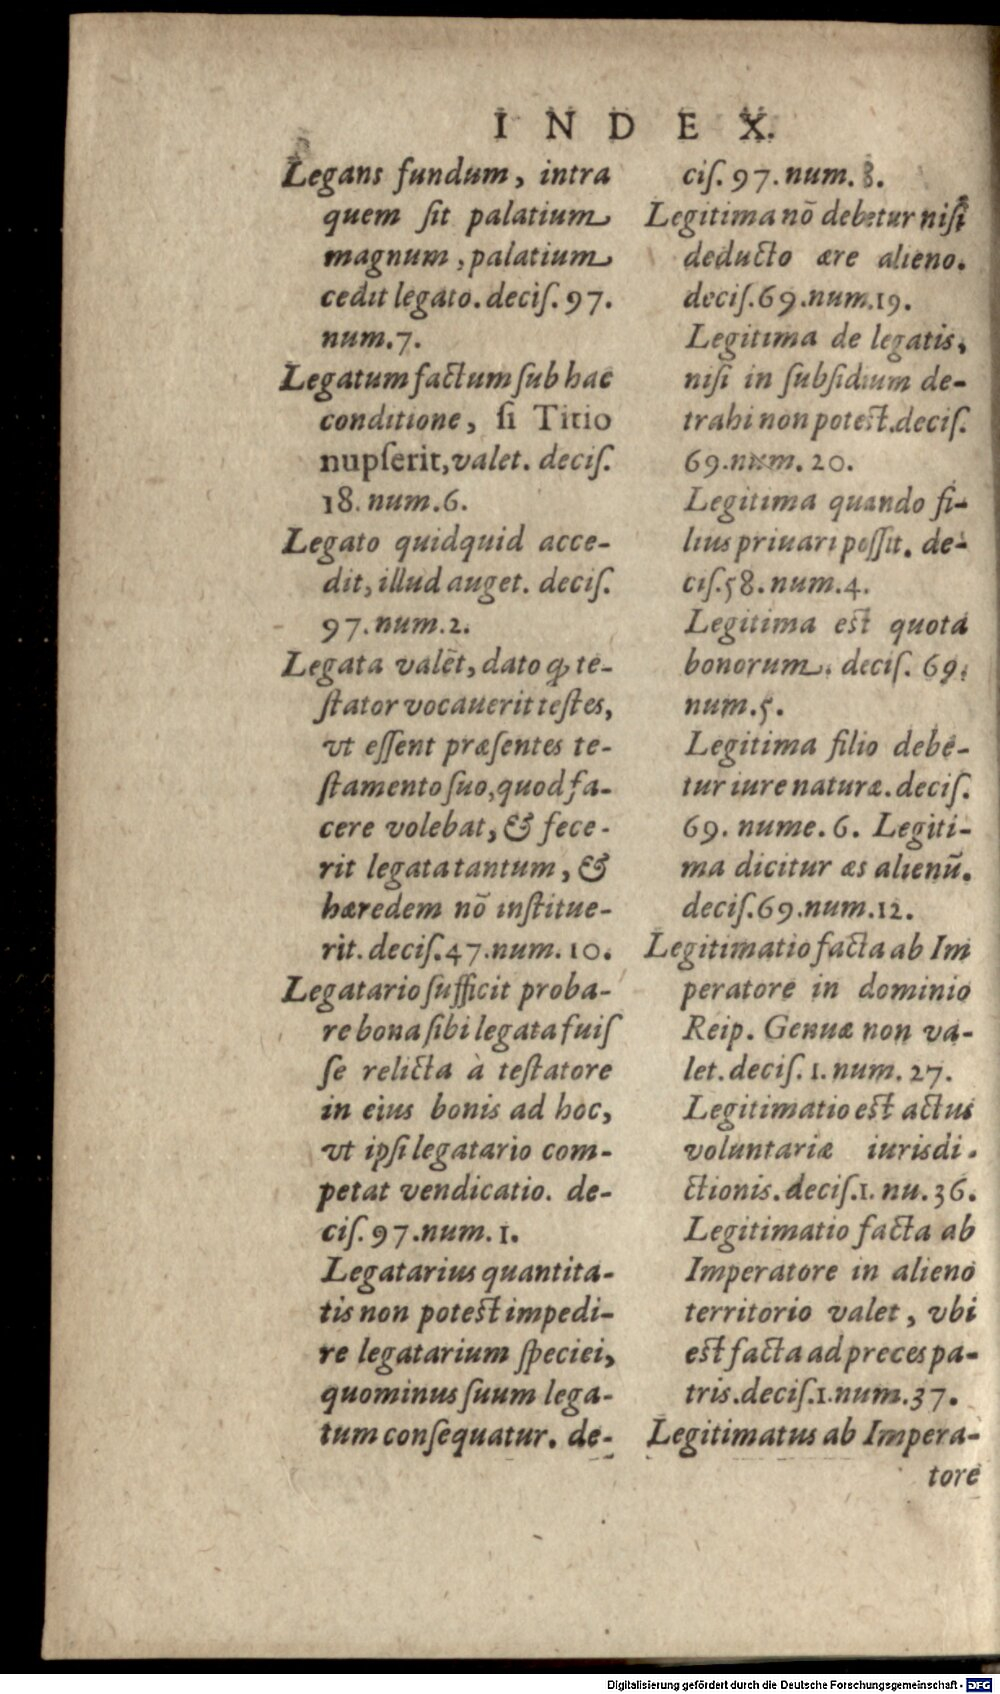 INDEX.
Legans fundum, intra
quem ſit palatium
magnum, palatium
cedit legato. deciſ. 97.
num. 7.
Legatum factum ſub hac
conditione, ſi Titio
nupſerit, valet. deciſ.
18. num. 6.
Legato quidquid acce-
dit, illud auget. deciſ.
97. num. 2.
Legata valēt, dato ꝙ te-
ſtator vocauerit teſtes,
vt eſſent præſentes te-
ſtamento ſuo, quod fa-
cere volebat, & fece-
rit legata tantum, &
hæredem nō inſtitue-
rit. deciſ. 47. num. 10.
Legatario ſufficit proba-
re bona ſibi legata fuiſ
ſe relicta à teſtatore
in eius bonis ad hoc,
vt ipſi legatario com-
petat vendicatio. de-
ciſ. 97. num. 1.
Legatarius quantita-
tis non poteſt impedi-
re legatarium ſpeciei,
quominus ſuum lega-
tum conſequatur. de-
ciſ. 97. num. 8.
Legitima nō debetur niſi
deducto ære alieno.
deciſ. 69. num. 19.
Legitima de legatis,
niſi in ſubſidium de-
trahi non poteſt. deciſ.
69. num. 20.
Legitima quando fi-
lius priuari poſſit. de-
ciſ. 58. num. 4.
Legitima eſt quota
bonorum. deciſ. 69.
num. 5.
Legitima filio debe-
tur iure naturæ. deciſ.
69. nume. 6. Legiti-
ma dicitur æs alienū.
deciſ. 69. num. 12.
Legitimatio facta ab Im
peratore in dominio
Reip. Genuæ non va-
let. deciſ. 1. num. 27.
Legitimatio eſt actus
voluntariæ iurisdi-
ctionis. deciſ. 1. nu. 36.
Legitimatio facta ab
Imperatore in alieno
territorio valet, vbi
eſt facta ad preces pa-
tris. deciſ. 1. num. 37.
Legitimatus ab Impera-
tore
Digitalisierung gefördert durch die Deutsche Forschungsgemeinschaft - DFG